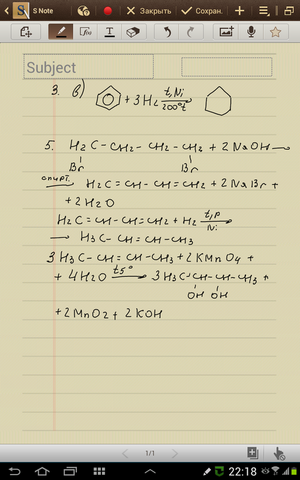 S Note
Закрыть
Сохран.
Subject
3. в) + 3H₂ t,Ni 200°t
5. H₂C–CH₂–CH₂–CH₂ + 2NaOH →
Br Br
спирт. H₂C=CH–CH=CH₂ + 2NaBr +
+ 2H₂O
H₂C=CH–CH=CH₂ + H₂ t,p Ni
→ H₃C–CH=CH–CH₃
3H₃C–CH=CH–CH₃ + 2KMnO₄ +
+ 4H₂O t5° 3H₃C–CH–CH–CH₃ +
OH OH
+ 2MnO₂ + 2KOH
1/1
22:18